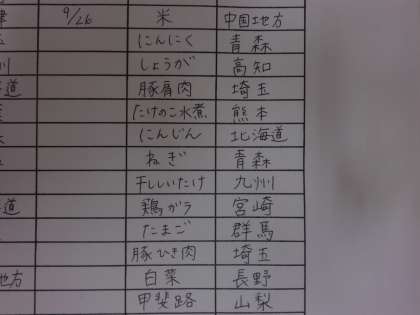 津 9/26 米 中国地方
にんにく 青森
しょうが 高知
道 豚肩肉 埼玉
たけのこ水煮 熊本
にんじん 北海道
ねぎ 青森
干ししいたけ 九州
道 鶏ガラ 宮崎
たまご 群馬
豚ひき肉 埼玉
地方 白菜 長野
甲斐路 山梨